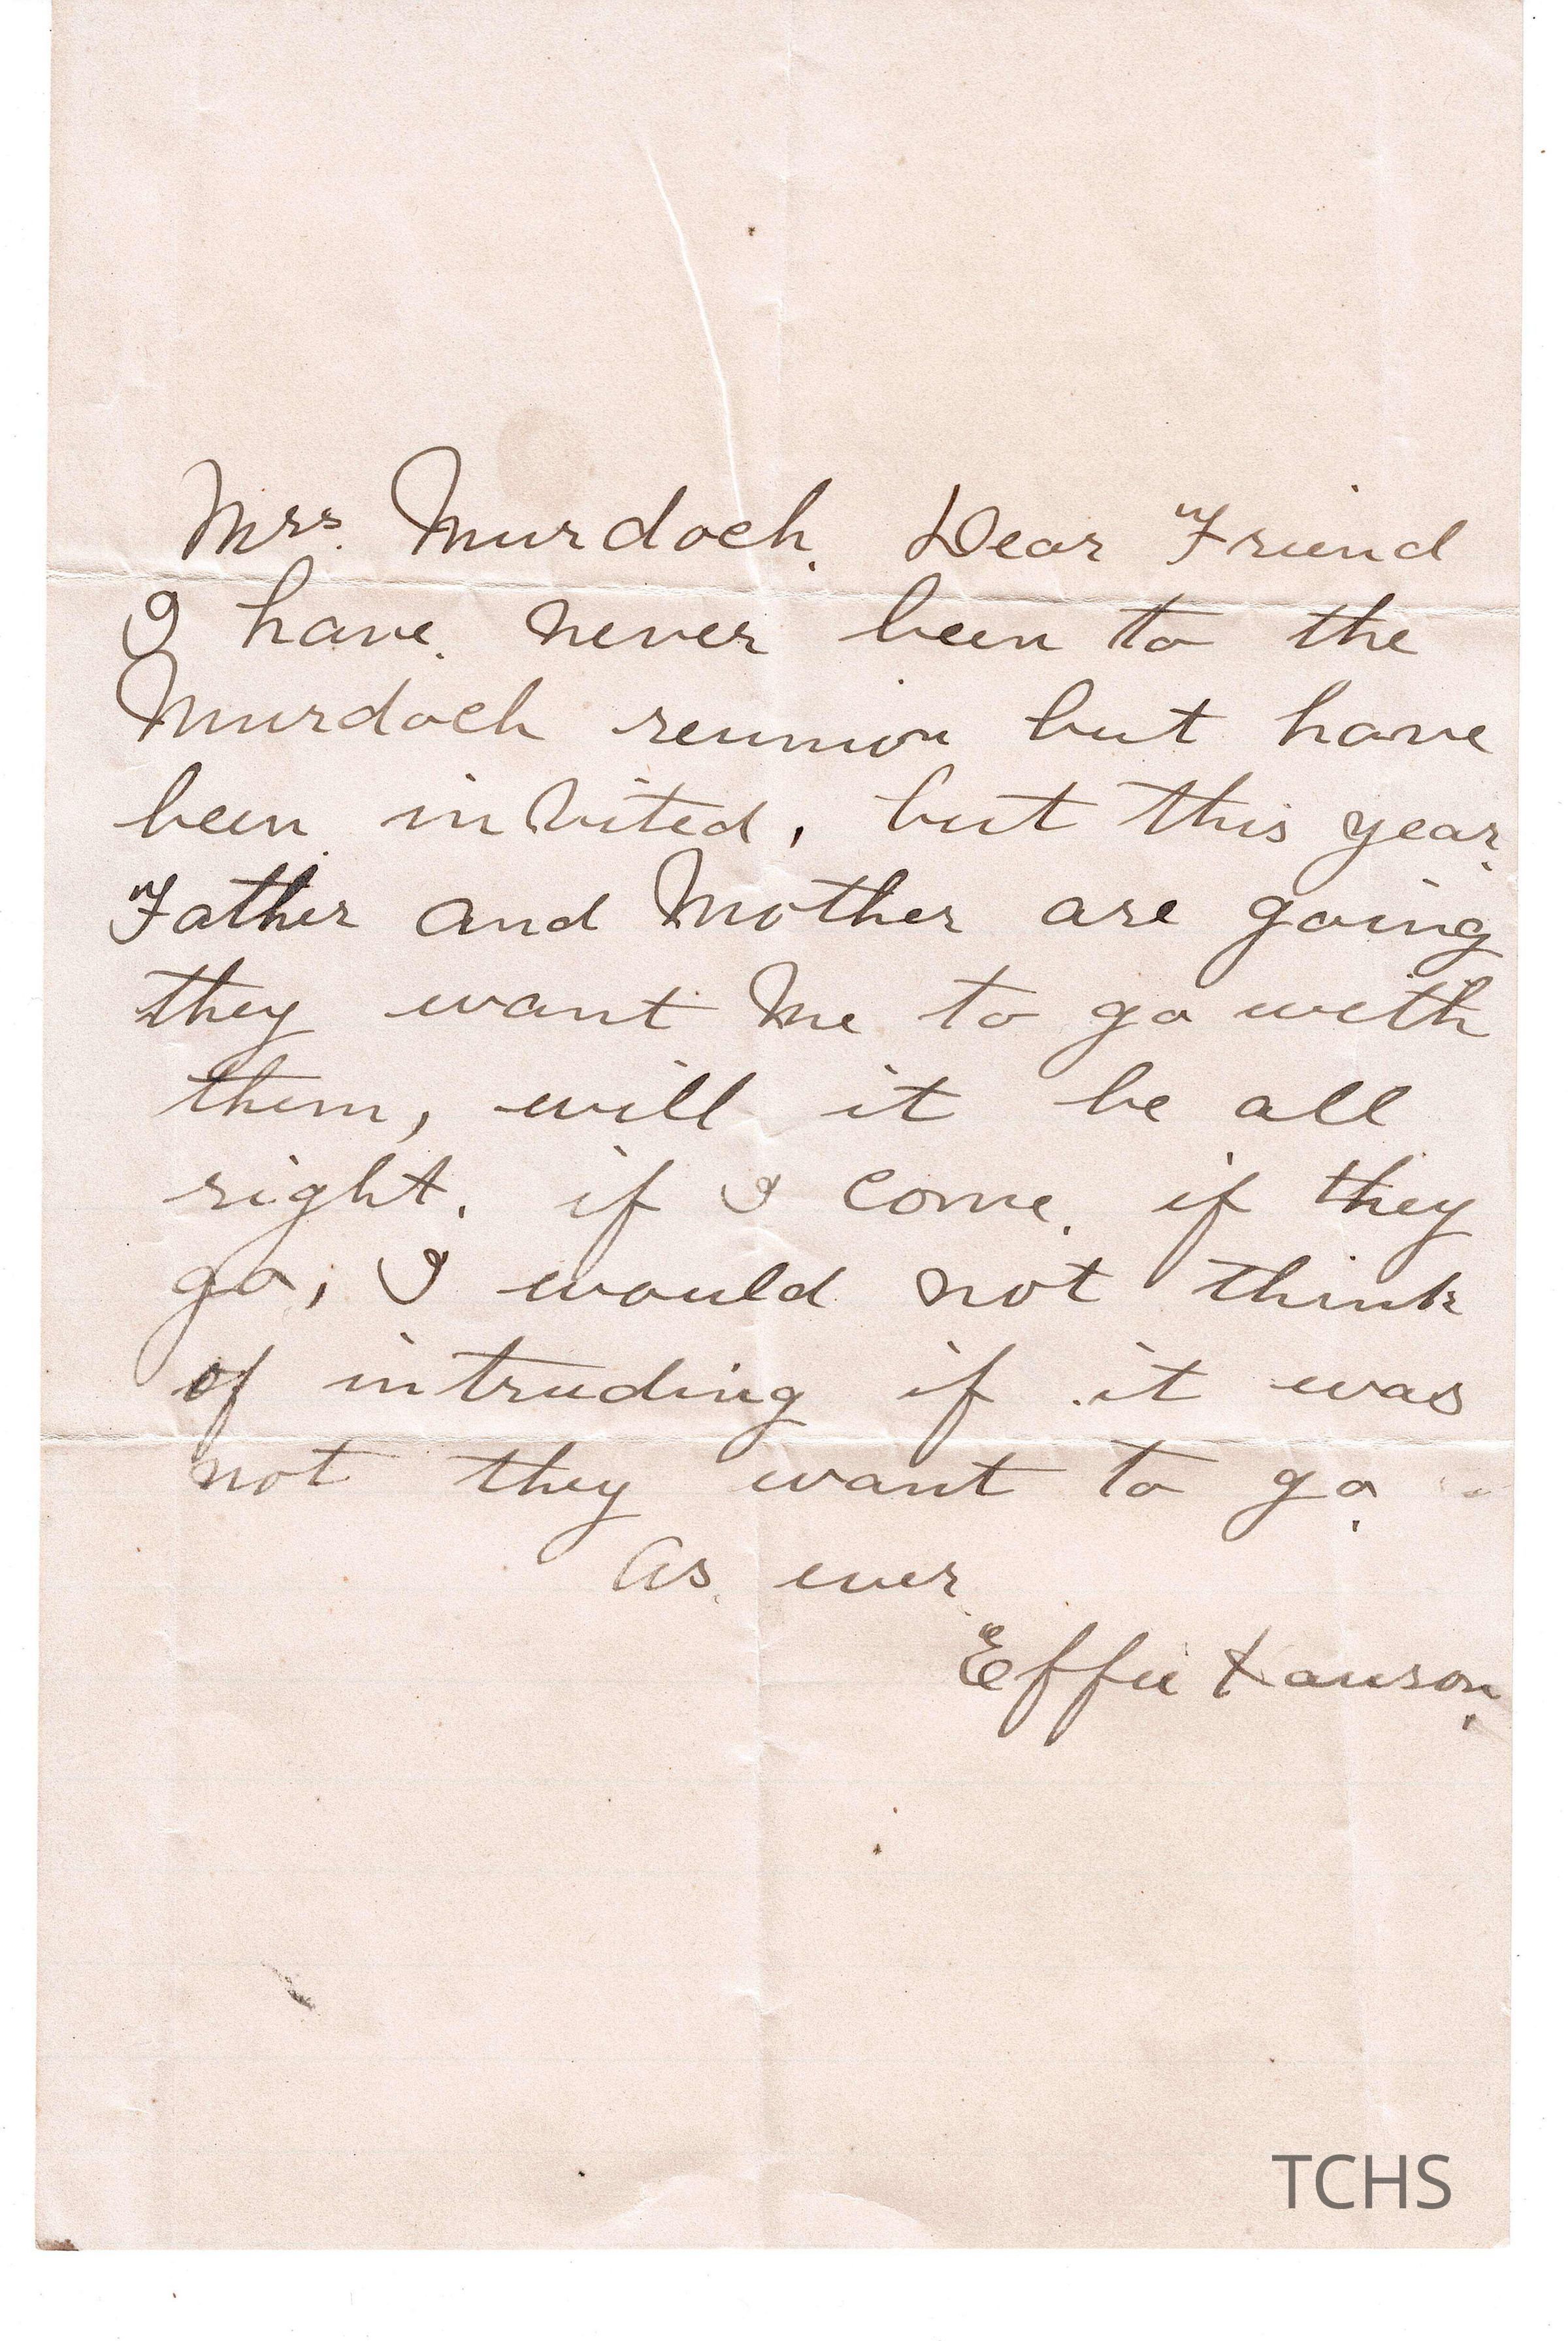 Mrs. Murdoch. Dear Friend
I have. never been to the
Murdoch reunion but have
been invited, but this year.
Father and Mother are going
they want me to go with
them, will it be all
right. if I come. if they
go, I would not think
of intruding if it was
not they want to go.
As. ever.
Effie Lawson.
TCHS